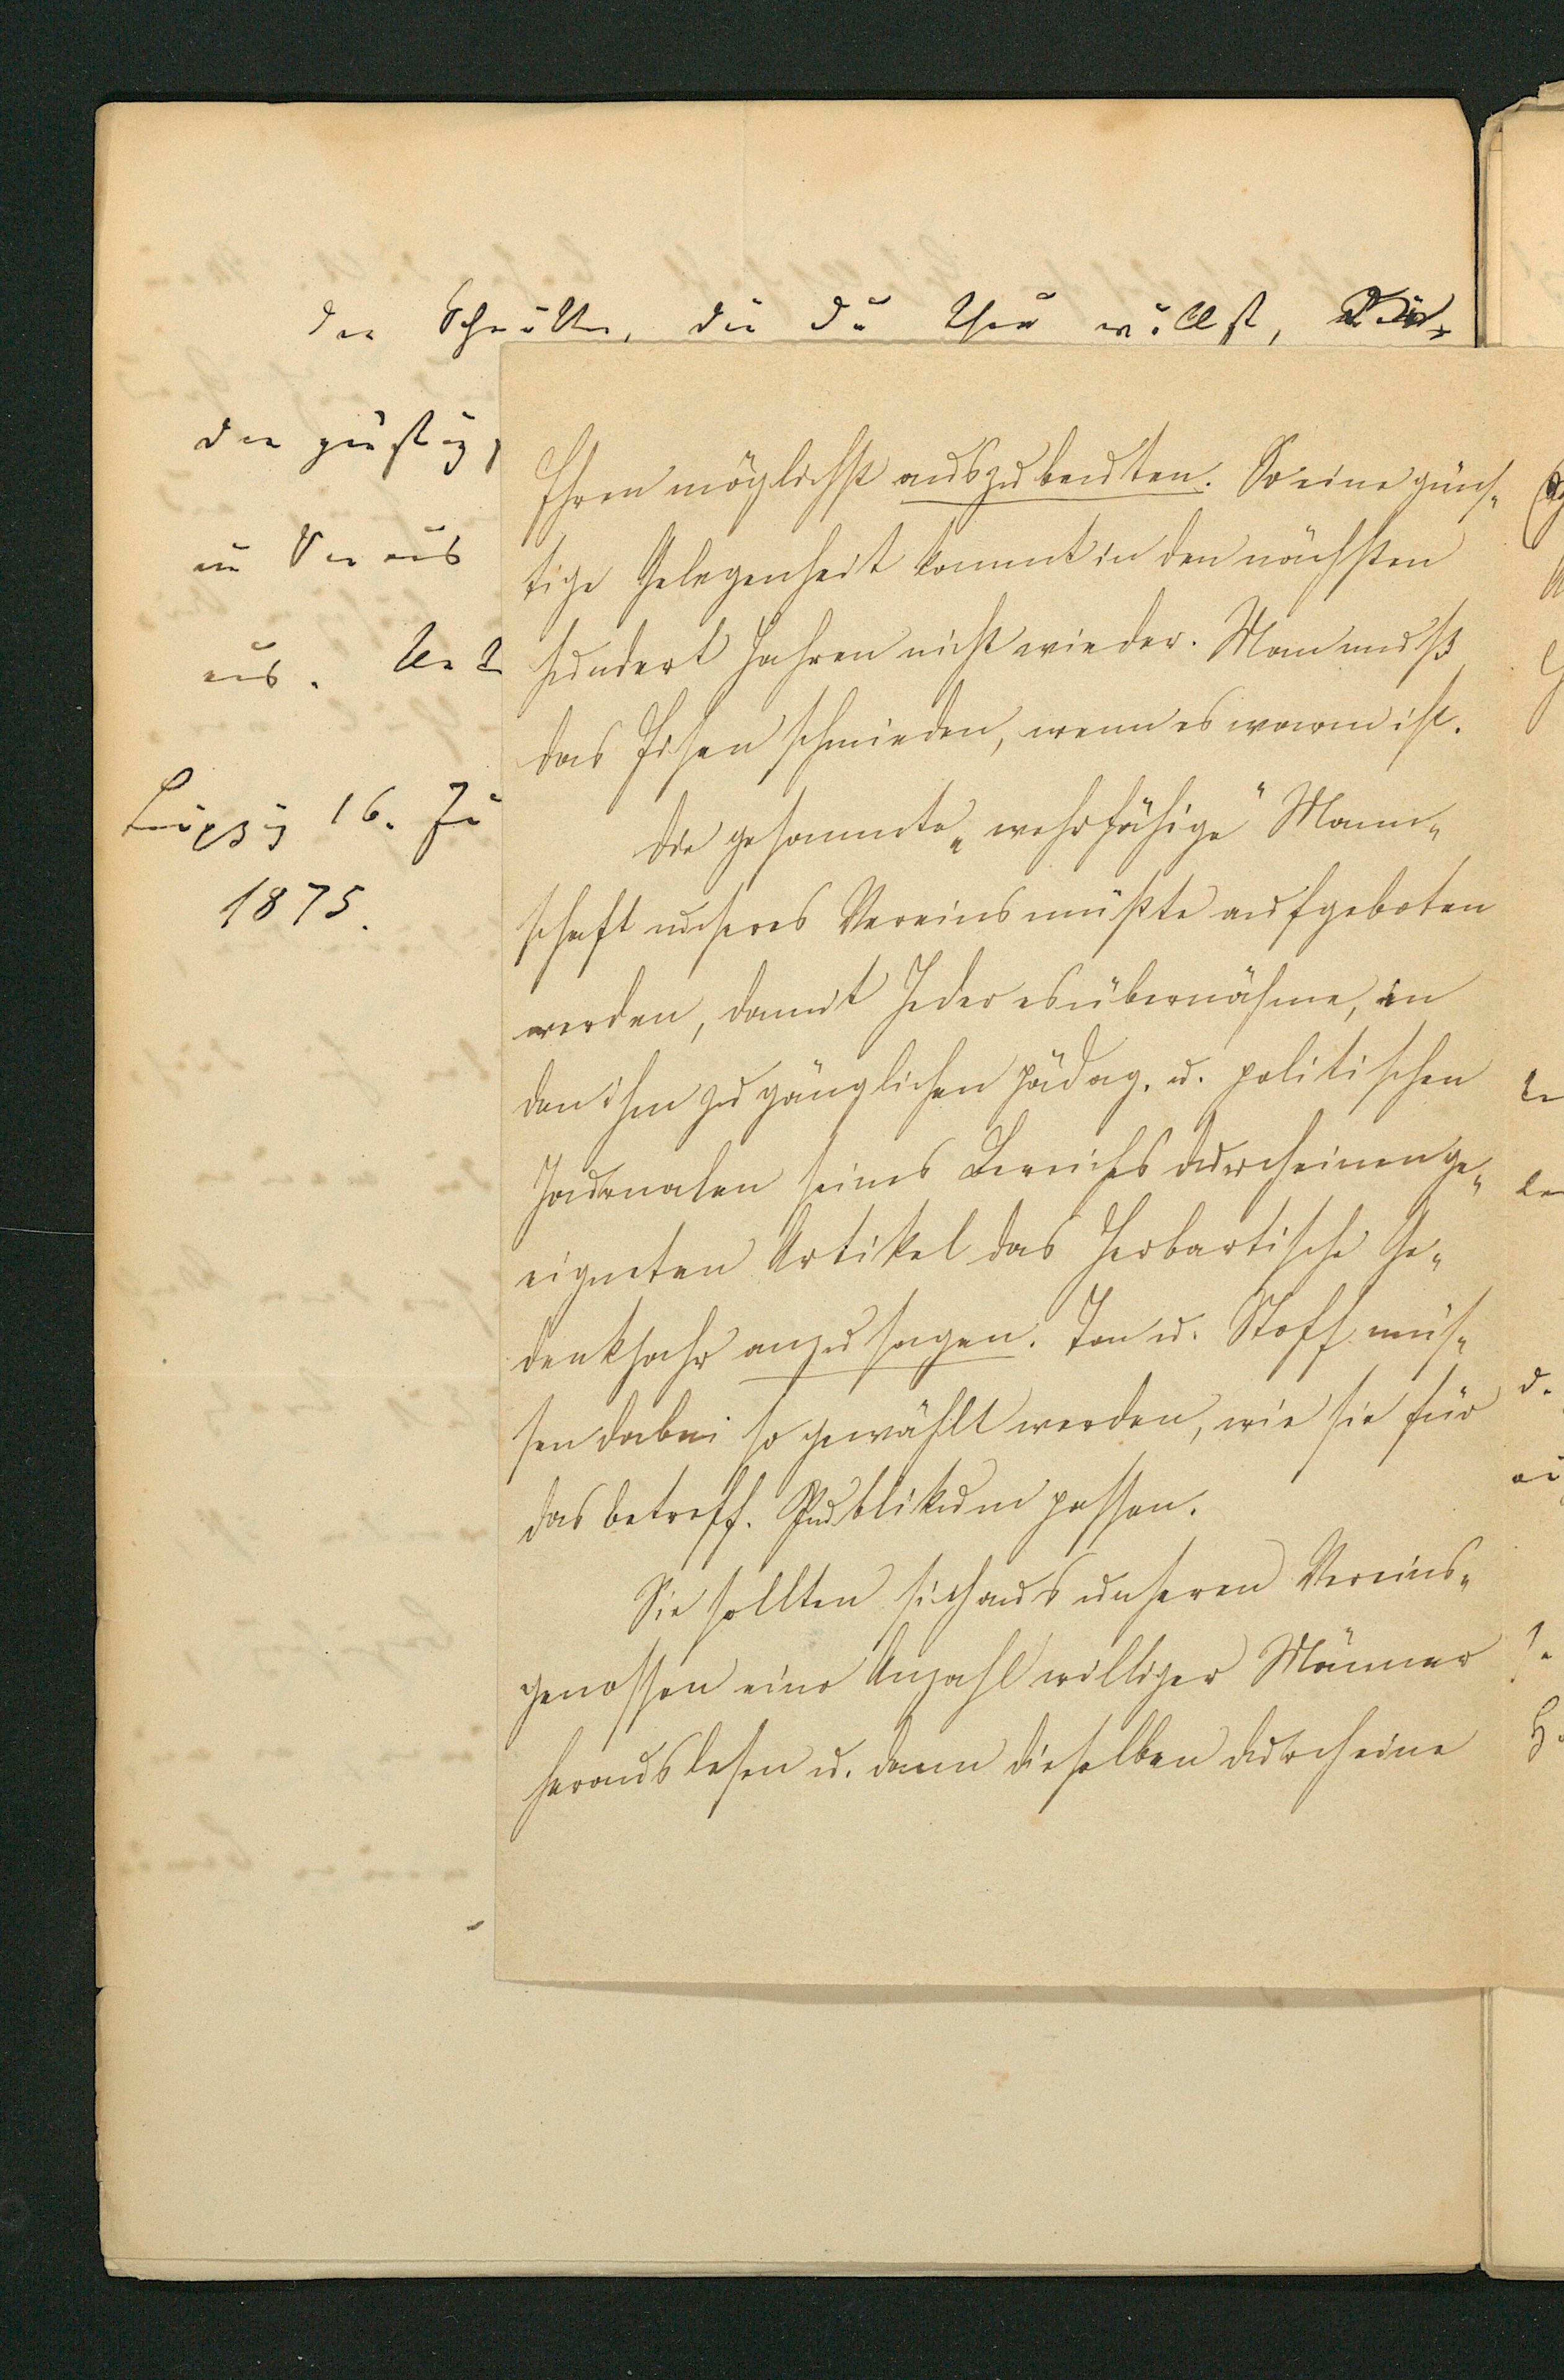 der Schritte, die du thun willst,
der günstig
im Voraus
aus.
Leipzig 16. Ju
1875.
Ihren möglichst auszubeuten. So eine güns-
tige Gelegenheit kommt in den nächsten
hundert Jahren nicht wieder. Man muß
das Eisen schmieden, wenn es warm ist.
Die gesammte „wehrfähige“ Mann-
schaft unseres Vereins müßte aufgeboten
werden, damit Jeder es übernähme, in
den ihm zugänglichen pädag. u. politischen
Journalen seines Bereichs durch einen ge-
eigneten Artikel das Herbartische Ge-
denkjahr anzusagen. Ton u. Stoff müs-
sen dabei so gewählt werden, wie sie für
das betreff. Publikum passen.
Sie sollten sich aus unseren Vereins-
genossen eine Anzahl williger Männer
herauslesen u. dann dieselben durch eine